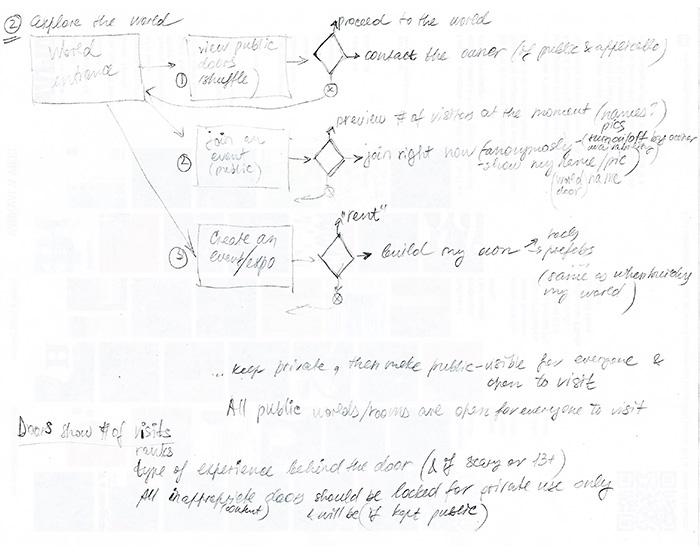 ② explore the world
World entrance
① view public doors (shuffle)
proceed to the world
contact the owner (if public & applicable)
② join an event (public)
preview # of visitors at the moment (names?)
pics
(turn on/off by owner
availability)
join right now (anonymously
- show my name/pic)
(world name
door)
③ Create an event/expo
"rent"
build my own
prefabs
(same as when building
my world)
... keep private, then make public - visible for everyone &
open to visit
All public worlds/rooms are open for everyone to visit
Doors show # of visits
ranks
type of experience behind the door (& if scary or 13+)
All inappropriate doors should be locked for private use only
(content) & will be (if kept public)